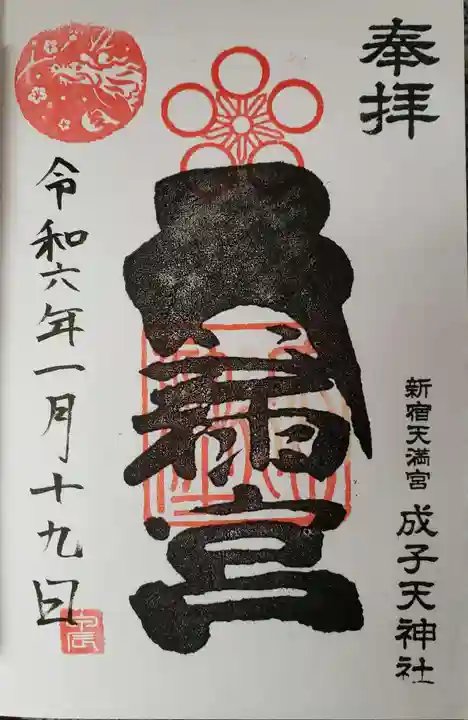 奉拝
新宿天満宮 成子天神社
天満宮
令和六年一月十九日
甲辰